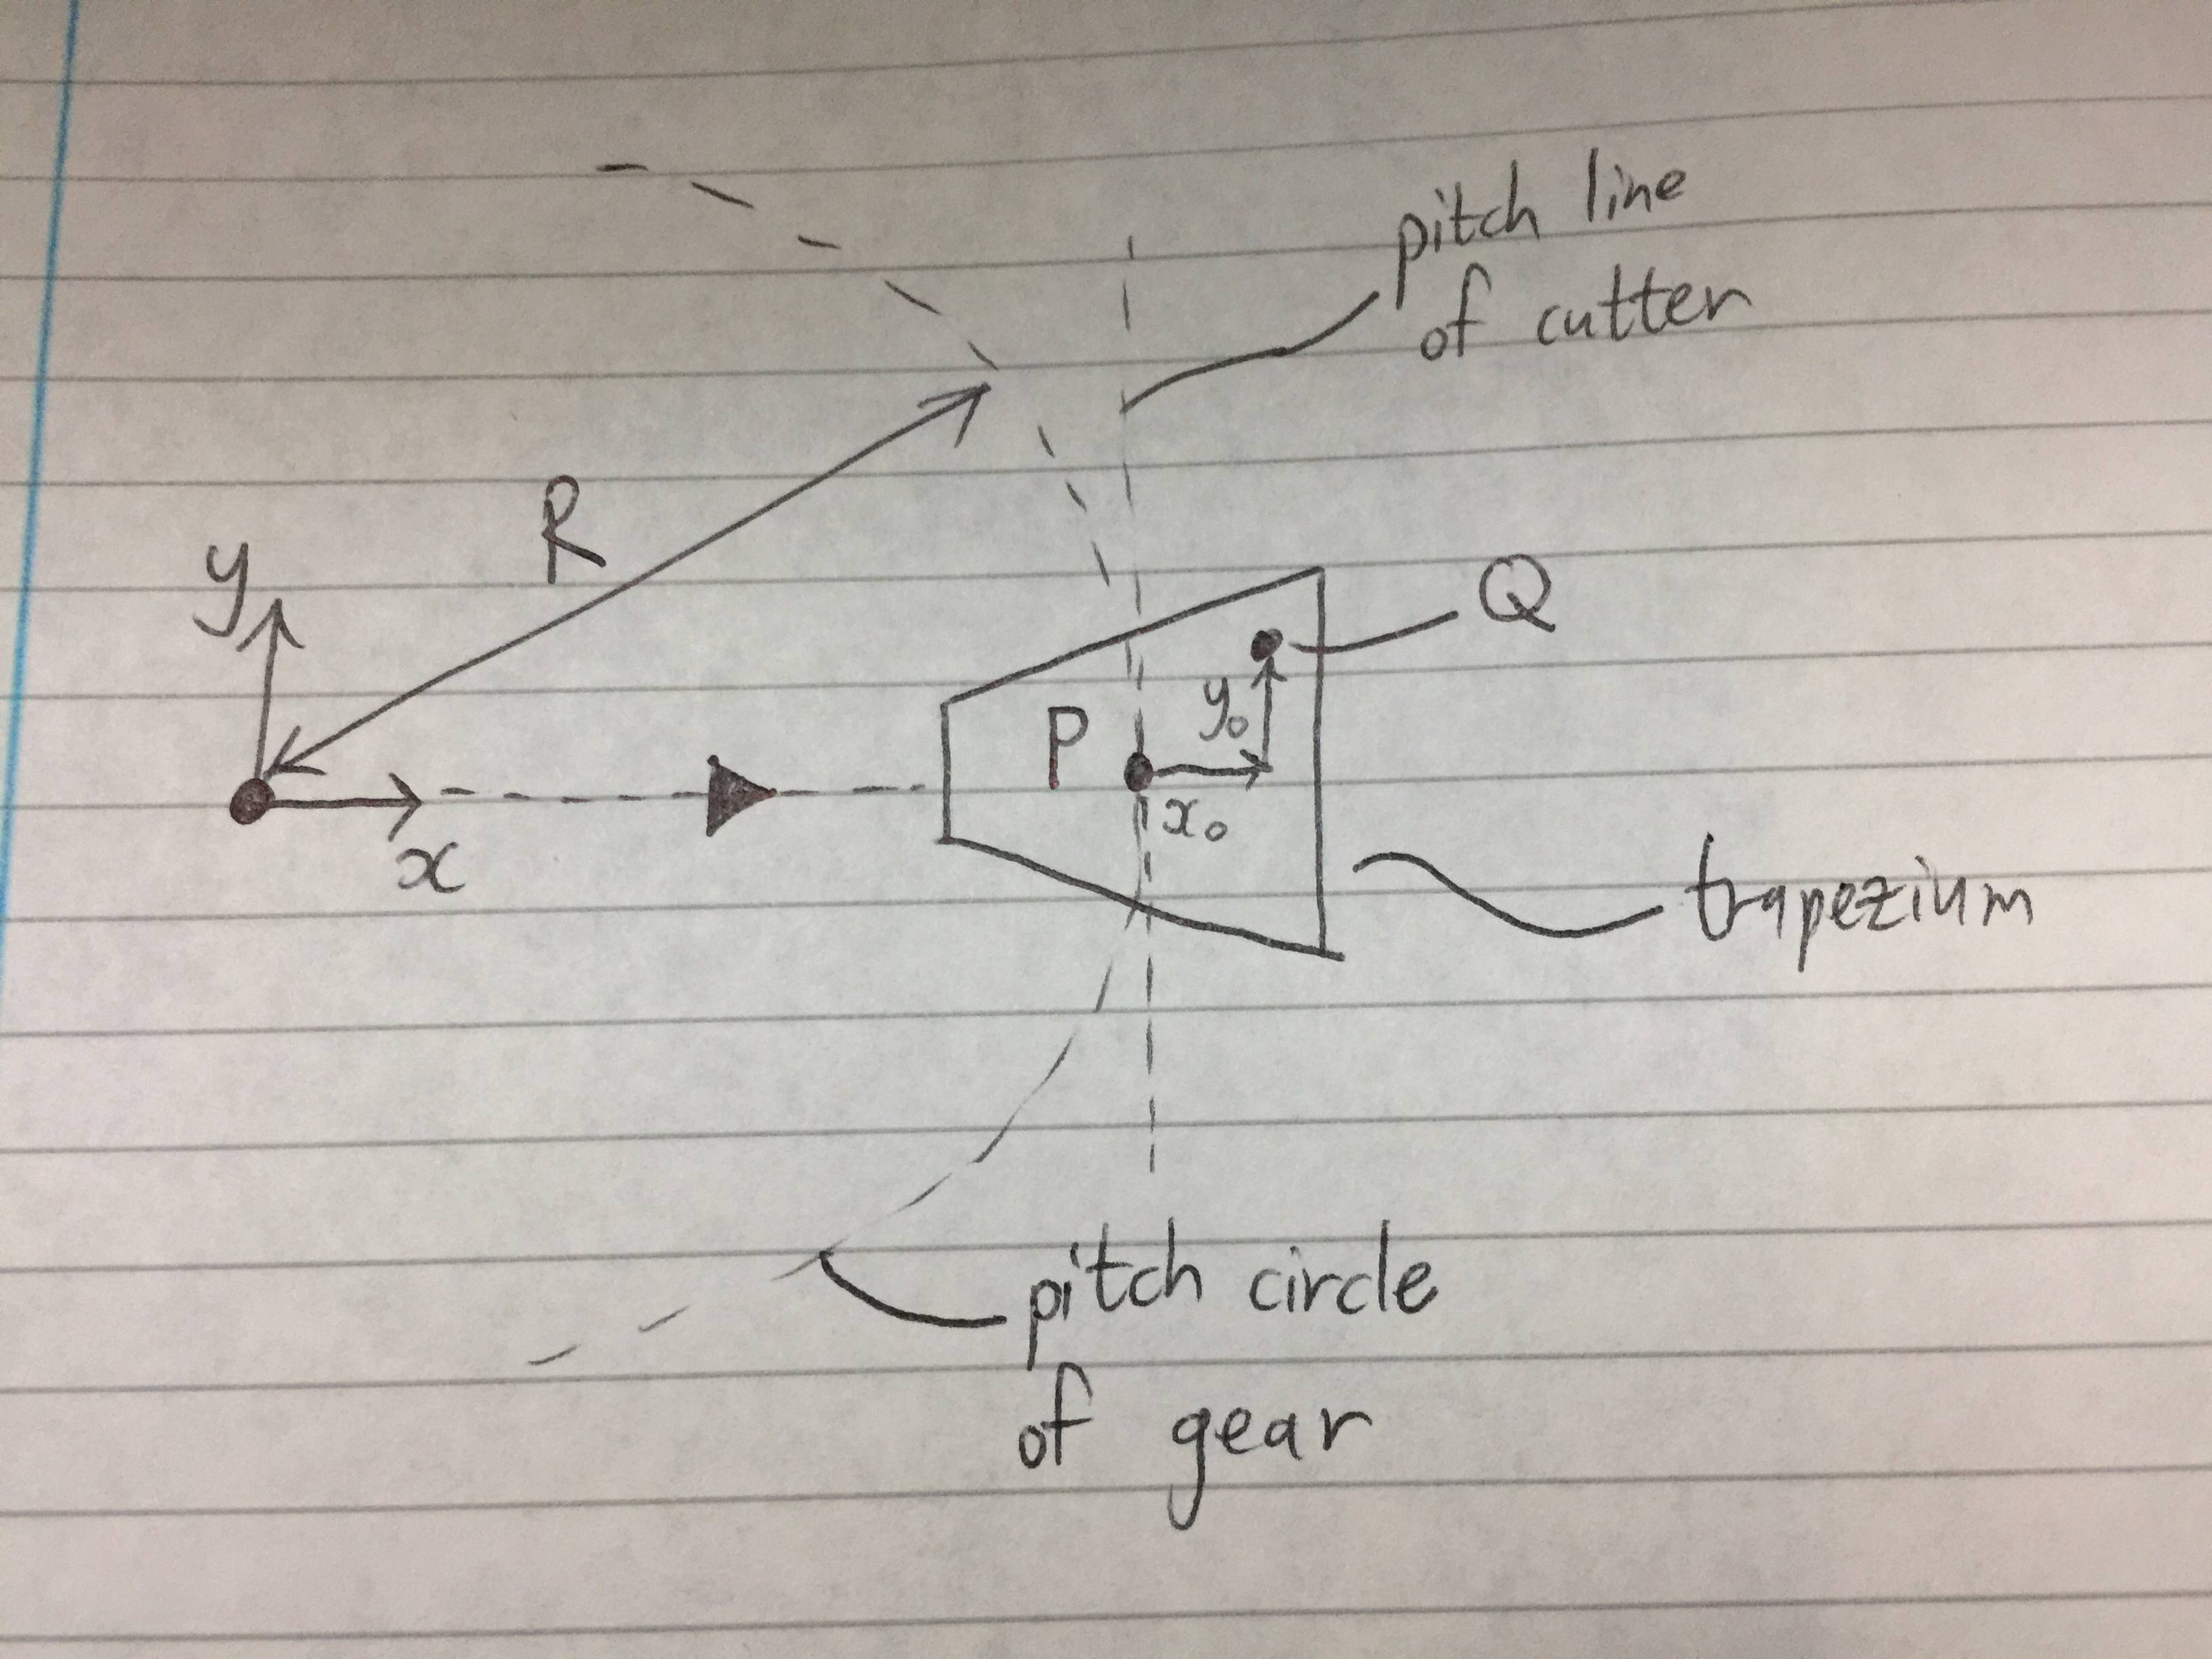 pitch line
of cutter
R
y
Q
y₀
P
x₀
x
trapezium
pitch circle
of gear